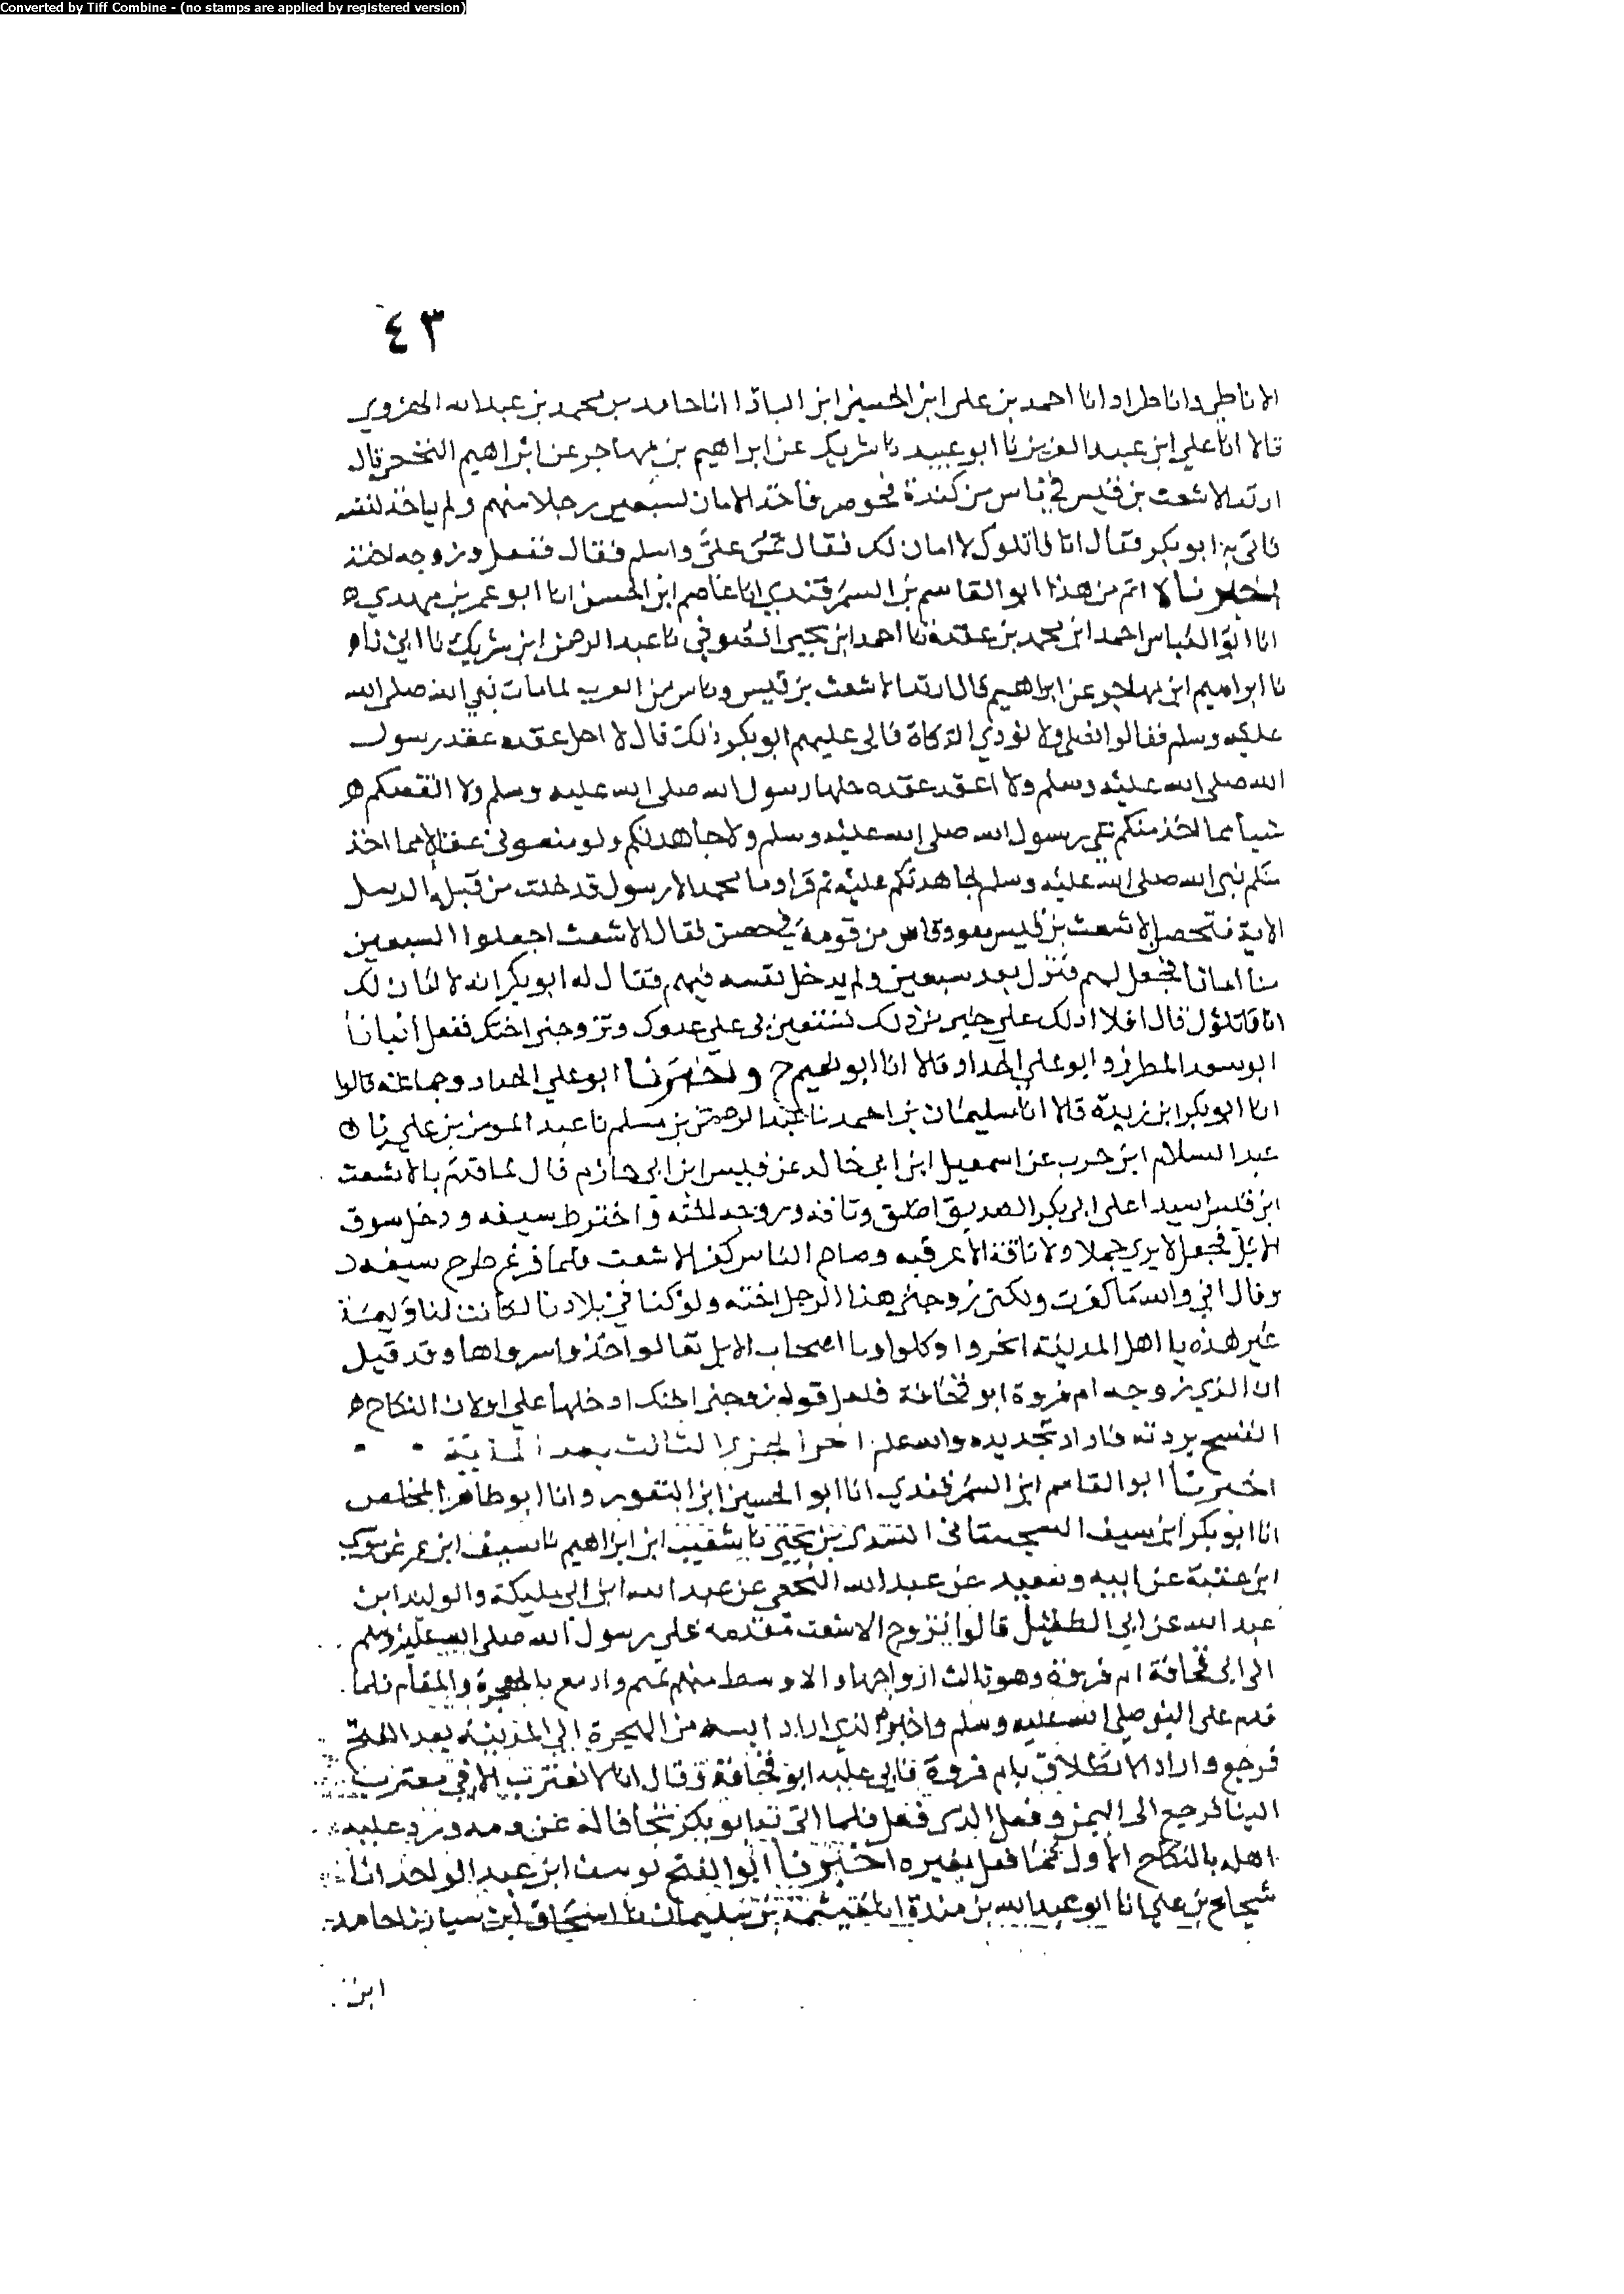 Converted by Tiff Combine - (no stamps are applied by registered version)
٤٣
الاناطي وانا طراد انا احمد بن علي ابن الحسين ابن الباذا انا حامد بن محمد بن عبد الله الهروي
قالا انا علي ابن عبد العزيز نا ابو عبيد نا شريك عن ابراهيم بن مهاجر عن ابراهيم النخعي قال
ارتد الاشعث بن قيس في ناس من كندة فحوصر فاخذ الامان لسبعين رجلا منهم ولم ياخذ لنفسه
فاتي به ابو بكر فقال انا قاتلوك لا امان لك فقال تمن علي واسلم فقال ففعل وزوجه اخته
اخبرنا لا اتم من هذا ابو القاسم بن السمرقندي انا عاصم ابن الحسن انا ابو عمر بن مهدي ه
انا ابو العباس احمد ابن محمد بن عقدة نا احمد ابن يحيى الصوفي نا عبد الرحمن ابن شريك نا ابي نا ه
نا ابراهيم ابن مهاجر عن ابراهيم قال ارتد الاشعث بن قيس وناس من العرب لما مات نبي الله صلى الله
عليه وسلم فقالوا نصلي ولا نودي الزكاة فابى عليهم ابو بكر ذلك قال لا احل عقدة عقد رسول
الله صلى الله عليه وسلم ولا اعقد عقده حلها رسول الله صلى الله عليه وسلم ولا انقصكم ه
شيا مما اخذ منكم نبي رسول الله صلى الله عليه وسلم ولاجاهدنكم ولو منعوني عقالا مما اخذ
منكم نبي الله صلى الله عليه وسلم لجاهدتكم عليه ثم قرا وما محمد الا رسول قد خلت من قبله الرسل
الاية فتحصن الاشعث بن قيس هو وناس من قومه في حصن فقال الاشعث اجعلوا السبعين
منا امانا فجعل لهم فنزل بعد سبعين ولم يدخل نفسه فيهم فقال له ابو بكر انه لا امان لك
انا قاتلوك قال افلا ادلك على خير من ذلك تستعين بي على عدوك وتزوجني اختك ففعل انبانا
ابو سعد المطرز وابو علي الحداد قالا انا ابو نعيم ح واخبرنا ابو علي الحداد وجماعة قالوا
انا ابو بكر ابن زيدة قالا انا سليمان بن احمد نا عبد الرحمن بن مسلم نا عبد المومن بن علي نا ه
عبد السلام ابن حرب عن اسمعيل ابن ابي خالد عن قيس ابن ابي حازم قال لما قدم بالاشعث
ابن قيس اسيرا على ابي بكر الصديق اطلق وثاقه وزوجه اخته واخترط سيفه ودخل سوق
الابل فجعل لا يرى جملا ولا ناقة الا عرقبه وصاح الناس كفر الاشعث فلما فرغ طرح سيفه د
وقال اني والله ما كفرت ولكن زوجني هذا الرجل اخته ولو كنا في بلادنا لكانت لنا وليمة
غير هذه يا اهل المدينة انحروا وكلوا ويا اصحاب الابل تعالوا خذوا شرواها وقد قيل
ان الذي زوجه ام فروة ابو قحافة فلعل قوله زوجني اختك ادخلها علي اولان النكاح ه
انفسخ بردته فاراد تجديده والله علم اخر الجزء الثالث بعد المائية
اخبرنا ابو القاسم ابن السمرقندي انا ابو الحسين ابن النقور وانا ابو طاهر المخلص
انا ابو بكر ابن سيف السجستاني السري بن يحيى نا شعيب ابن ابراهيم نا سيف ابن عمر عن موسى
ابن عقبة عن ابيه وسعيد عن عبد الله النخعي عن عبد الله ابن ابي مليكة والوليد ابن
عبد الله عن ابي الطفيل قالوا تزوج الاشعث مقدمه على رسول الله صلى الله عليه وسلم
الى ابي قحافة ام فروة وهو ثالث ازواجها والاوسط منهم تميم وادمع بالهجرة والمقام فلما
قدم على النبي صلى الله عليه وسلم واخبره الذي اراد ايسه من الهجرة الى المدينة بعد الفتح
فرجع واراد الانطلاق بام فروة فابى عليه ابو قحافة وقال انا لا نغترب الا في مغترب
الينا فرجع الى اليمن وفعل الذي فعل فلما اتى به ابو بكر تجافا له عن دمه ورد عليه
اهله بالنكاح الاول كما فعل بغيره اخبرنا ابو الفتح يوسف ابن عبد الواحد انا
شجاع بن علي انا ابو عبد الله بن مندة انا خيثمة بن سليمان نا اسحاق ابن سيار نا حامد
ابن